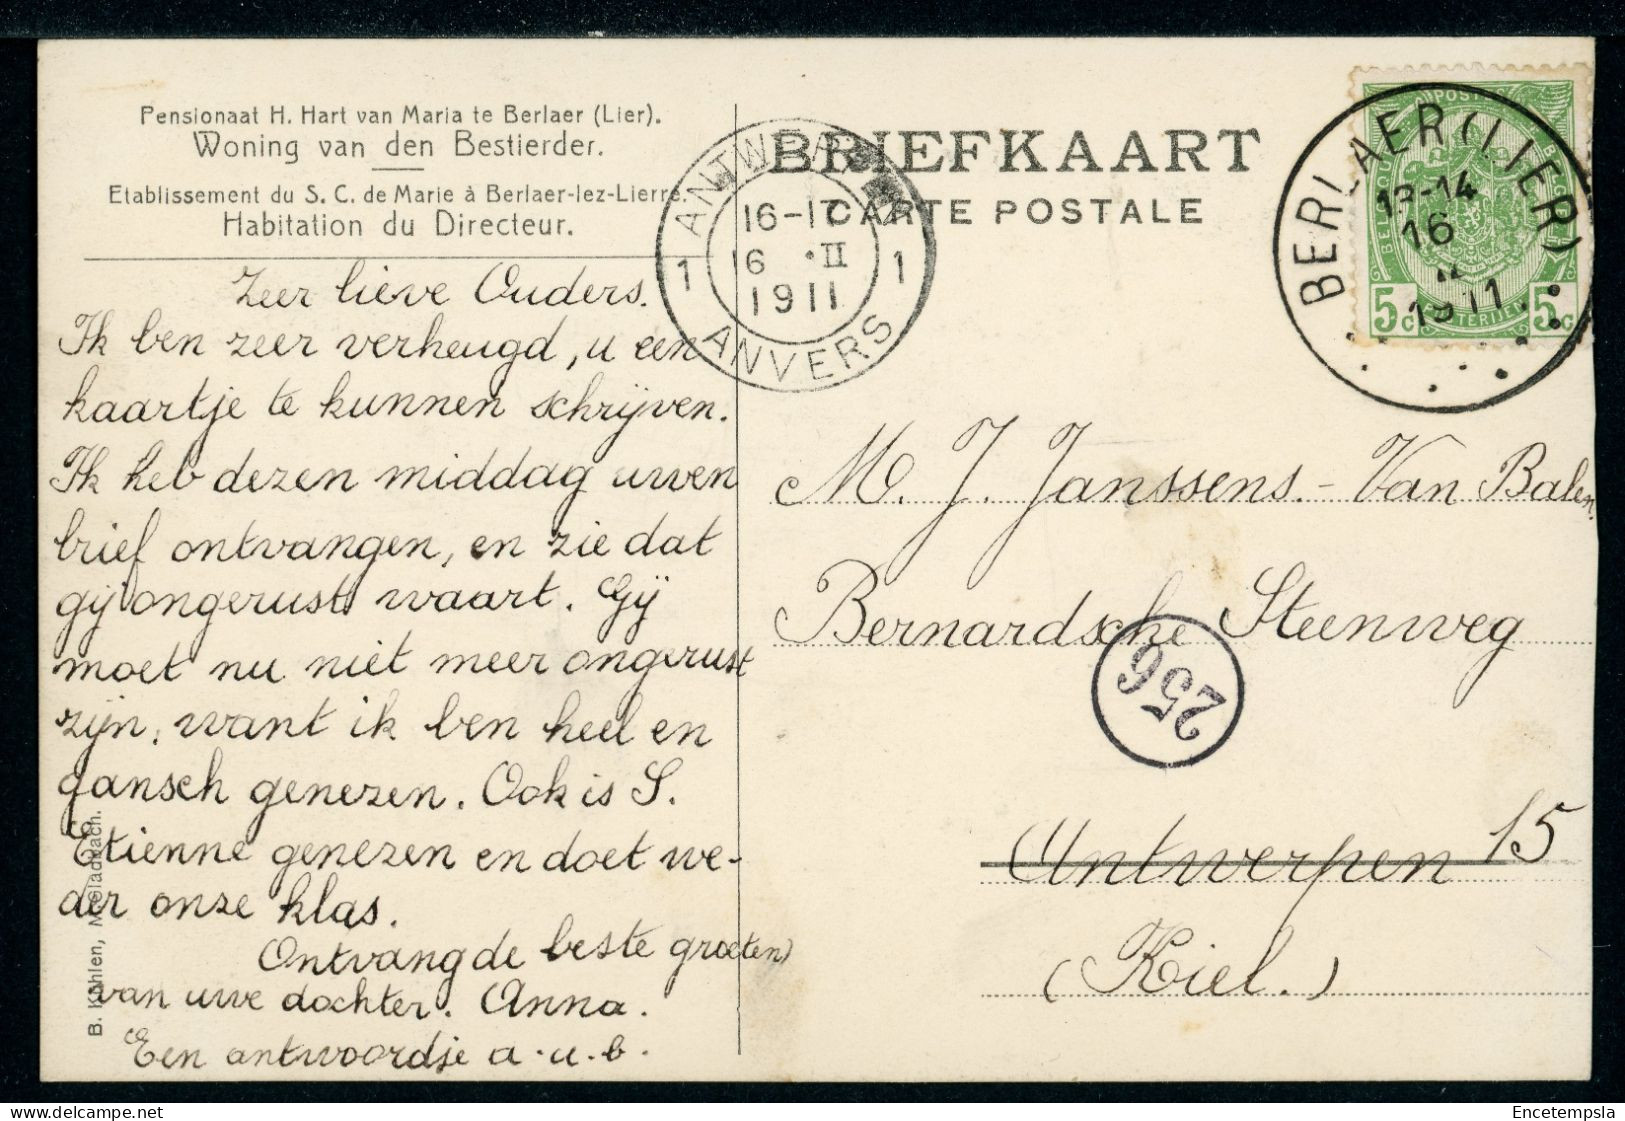 Pensionaat H. Hart van Maria te Berlaer (Lier).
Woning van den Bestierder.
Etablissement du S. C. de Marie à Berlaer-lez-Lierre.
Habitation du Directeur.
BRIEFKAART
CARTE POSTALE
ANTWERPEN
1 16-17 1
16 · II
1911
ANVERS
BERLAER (LIER)
13-14
16
1911
POST
BELGIQUE
BELGIE
5c 5c
Zeer lieve Ouders.
Ik ben zeer verheugd, u een
kaartje te kunnen schrijven.
Ik heb dezen middag uwen
brief ontvangen, en zie dat
gij ongerust waart. Gij
moet nu niet meer ongerust
zijn, want ik ben heel en
gansch genezen. Ook is S.
Etienne genezen en doet we-
der onze klas.
Ontvang de beste groeten
van uwe dochter. Anna.
Een antwoordje a.u.b.
M. J. Janssens.-Van Balen.
Bernardsche Steenweg
256
Antwerpen 15
(Kiel.)
B. Kühlen, M.Gladbach.
Encetempsla